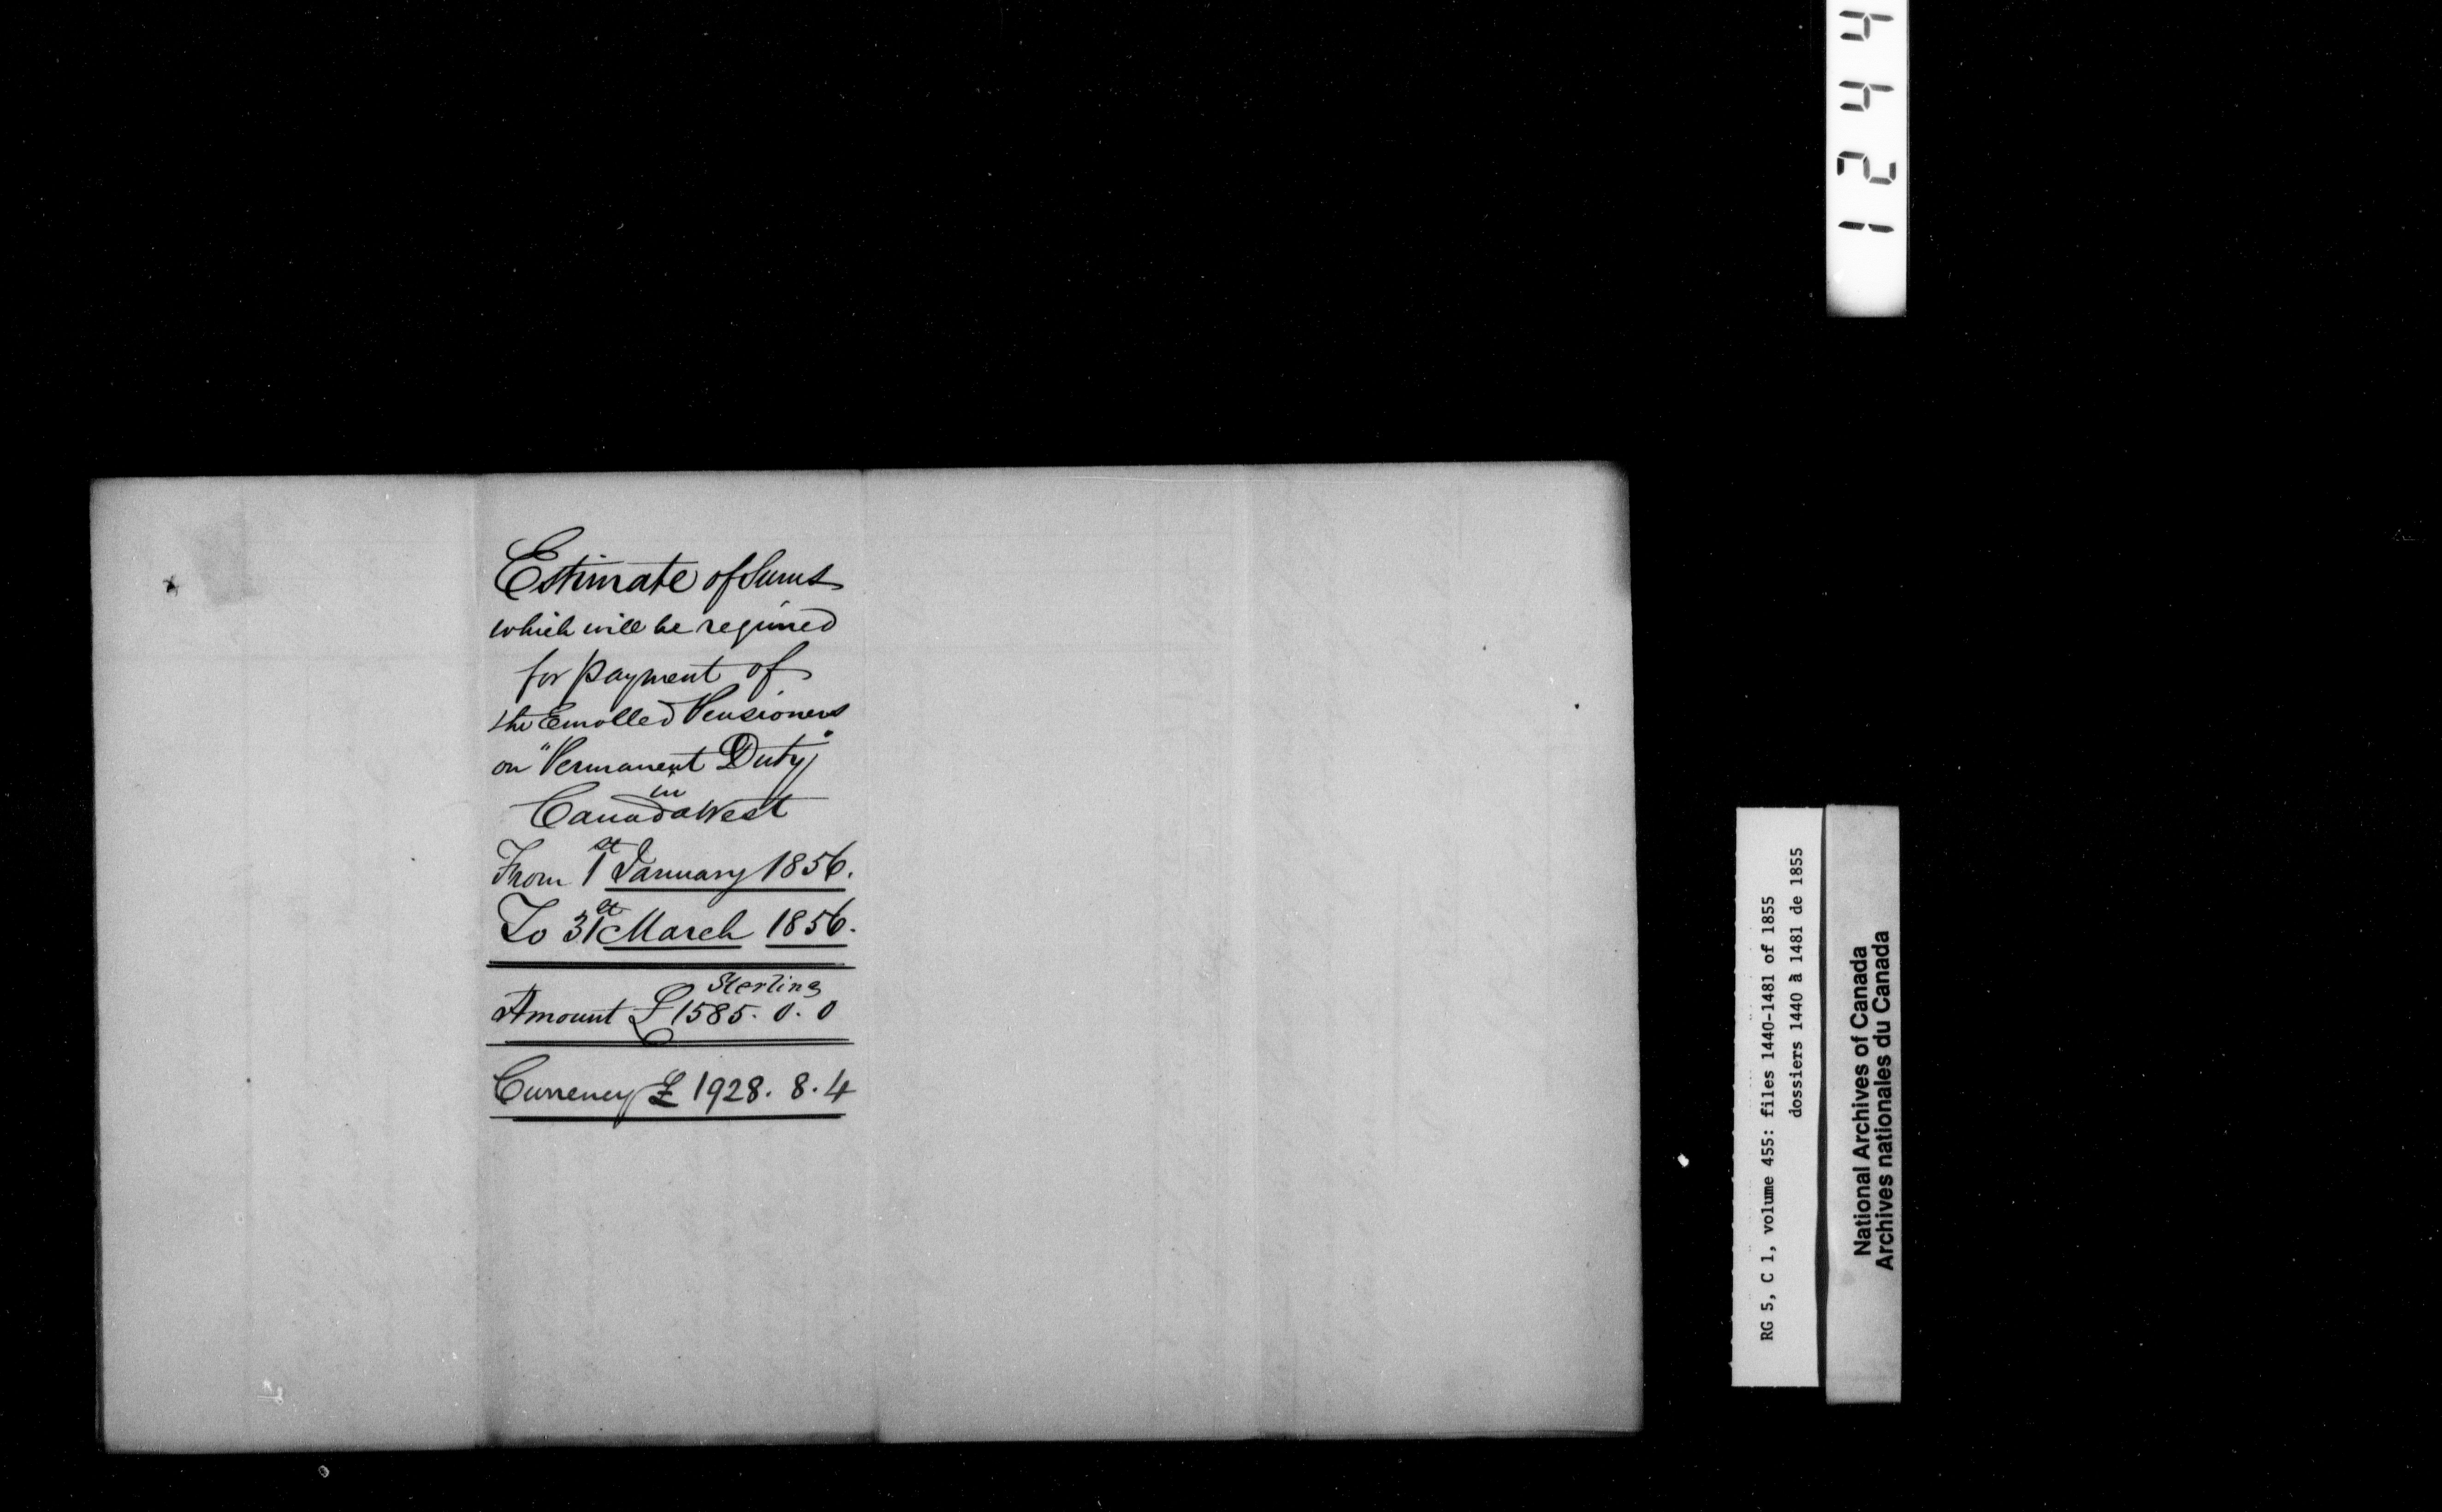 Estimate of Sums
which will be required
for payment of
the Enrolled Pensioners
on "Permanent Duty"
in
Canada West
From 1st January 1856.
To 31st March 1856.
Sterling
Amount £1585. 0. 0
Currency £ 1928. 8. 4
RG 5, C 1, volume 455: files 1440-1481 of 1855
dossiers 1440 à 1481 de 1855
National Archives of Canada
Archives nationales du Canada
1244